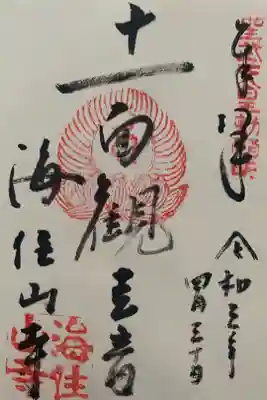 奉拝 令和三年四月三十日
十一面観世音
海住山寺
海住山寺